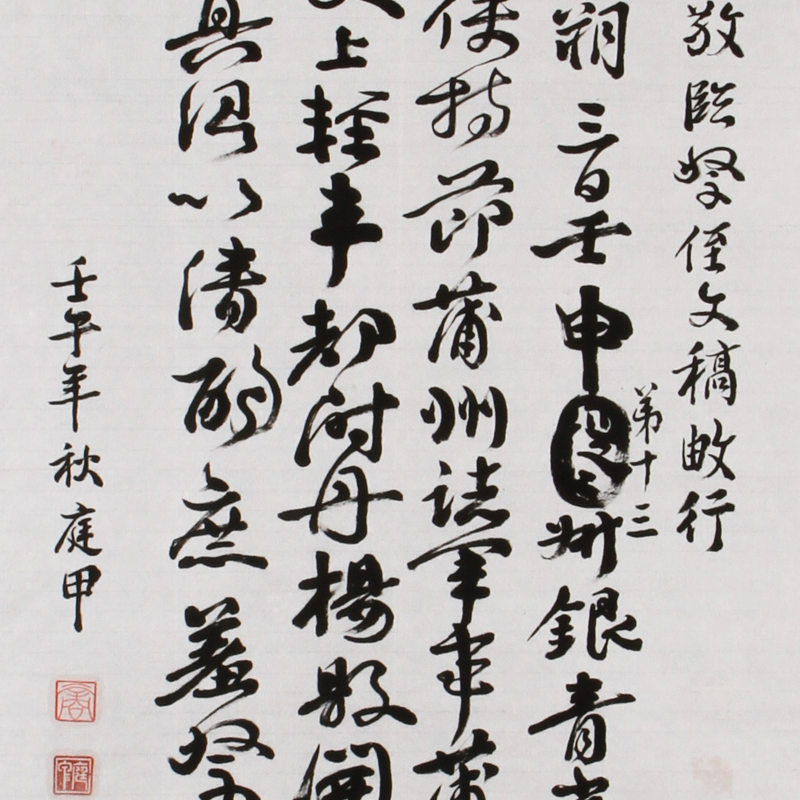 敬臨祭侄文稿數行
朔三日壬申叔銀青光
第十三
使持節蒲州諸軍事蒲
上輕車都尉丹楊縣開
真卿以清酌庶羞祭
壬午年秋庭甲